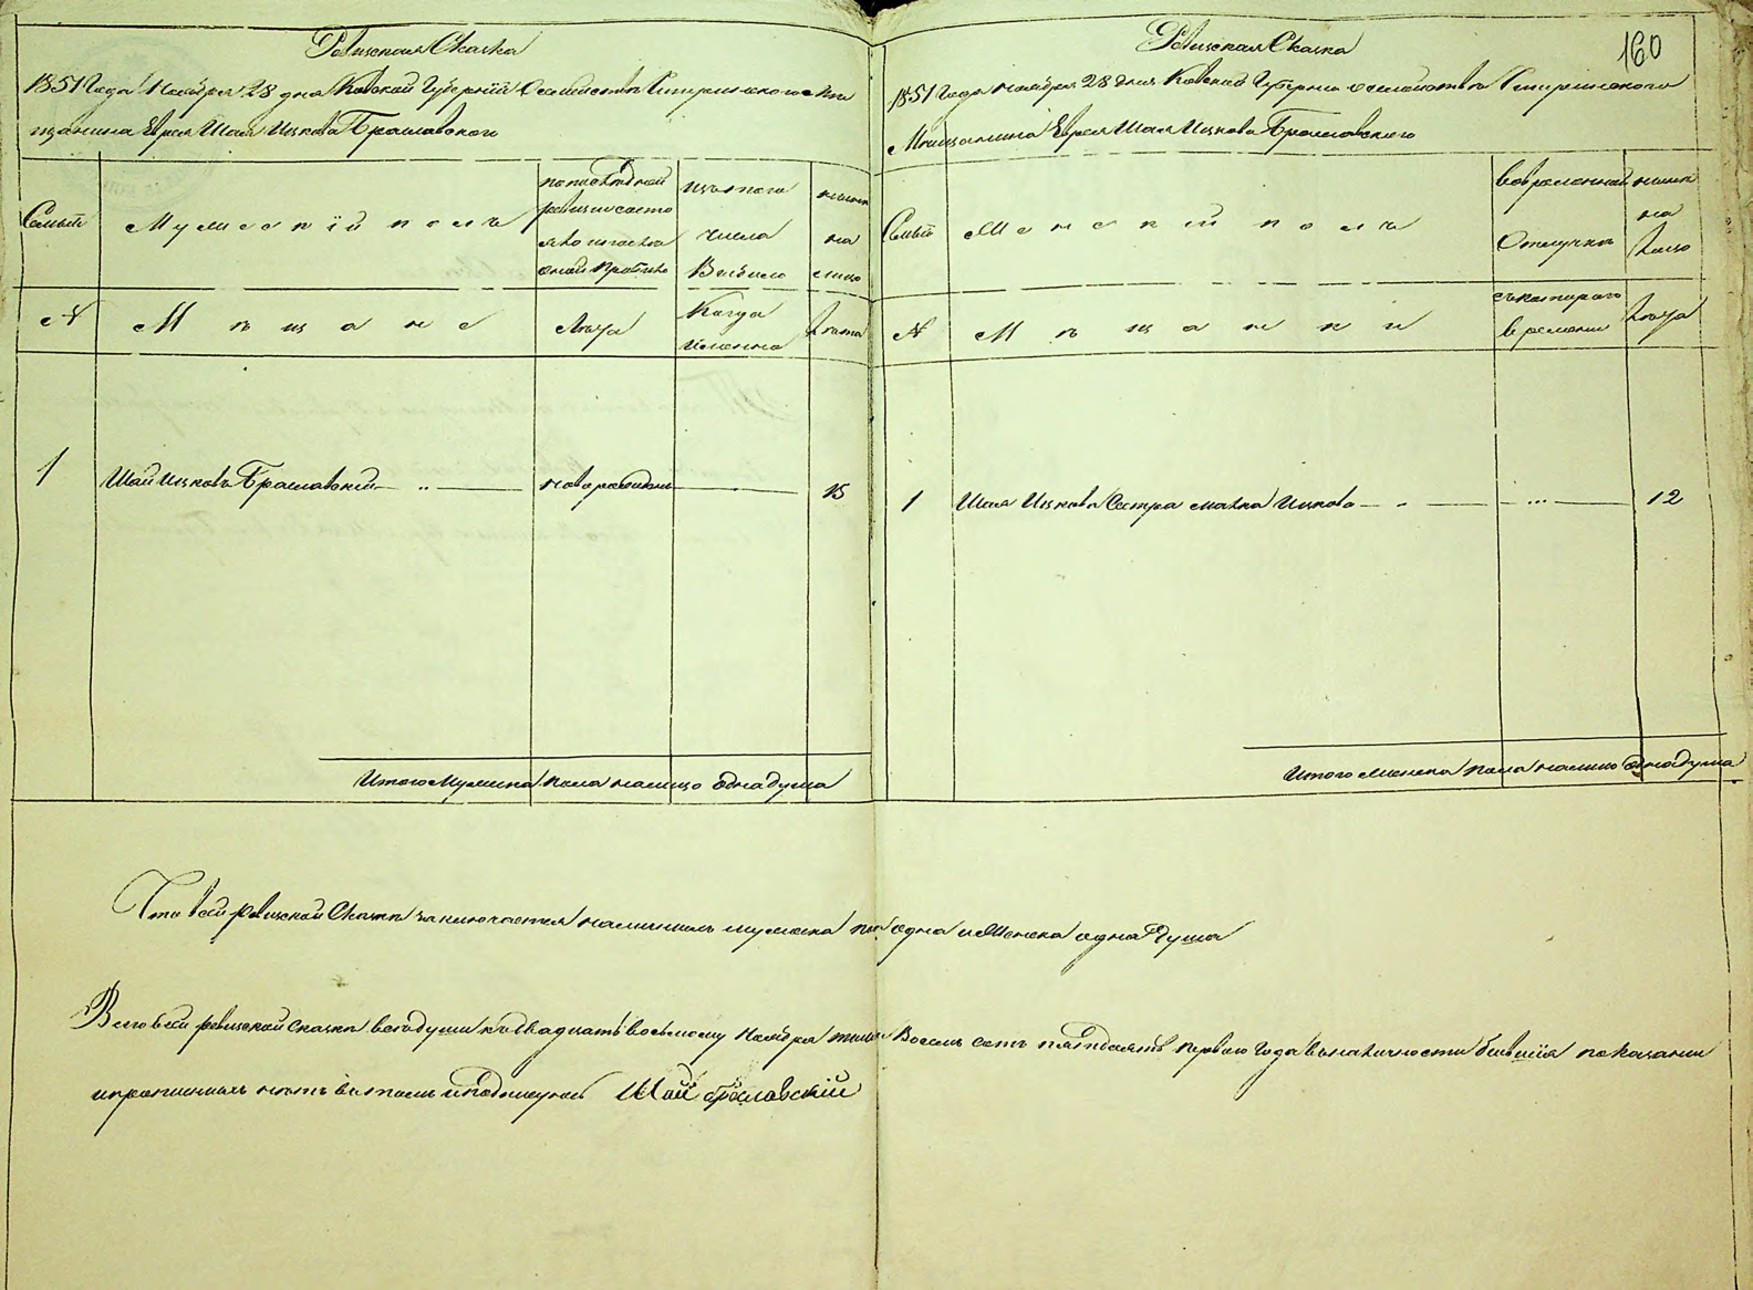 Ревизская Сказка
1851 Года Ноября 28 дня Ковской Губернiи о семействе
щанина Еврея Шая Ицкова Браславского
Семьи
Мужескiй полъ
по последней
ревизiи состо
яло и после
оной прибыло
изъ того
числа
Выбыло
ныне
на
лицо
№
Мещане
Лета
Когда
именно
Лета
1
Шай Ицковъ Браславскiй
новорожден
15
Итого Мужеска пола налицо одна душа
160
Ревизская Сказка
1851 Года ноября 28 дня Ковской Губернiи о семействе
Мещанина Еврея Шая Ицкова Браславского
Семьи
Женскiй полъ
во временной
Отлучке
ныне
на
лицо
№
Мещанки
съ котораго
времени
Лета
1
Шая Ицкова Сестра Ицкова
12
Итого Женска пола налицо одна душа
Что в сей ревизской Сказке заключается наличныхъ мужеска пол одна и Женска одна Душа
в сей ревизской Сказке к двадцать восьмому Ноября тысяч Восемь сотъ пятдесятъ первого Года в наличности бывшiя показаны
и прописныхъ нетъ в томъ и подписуюсь Шай Браславскiй